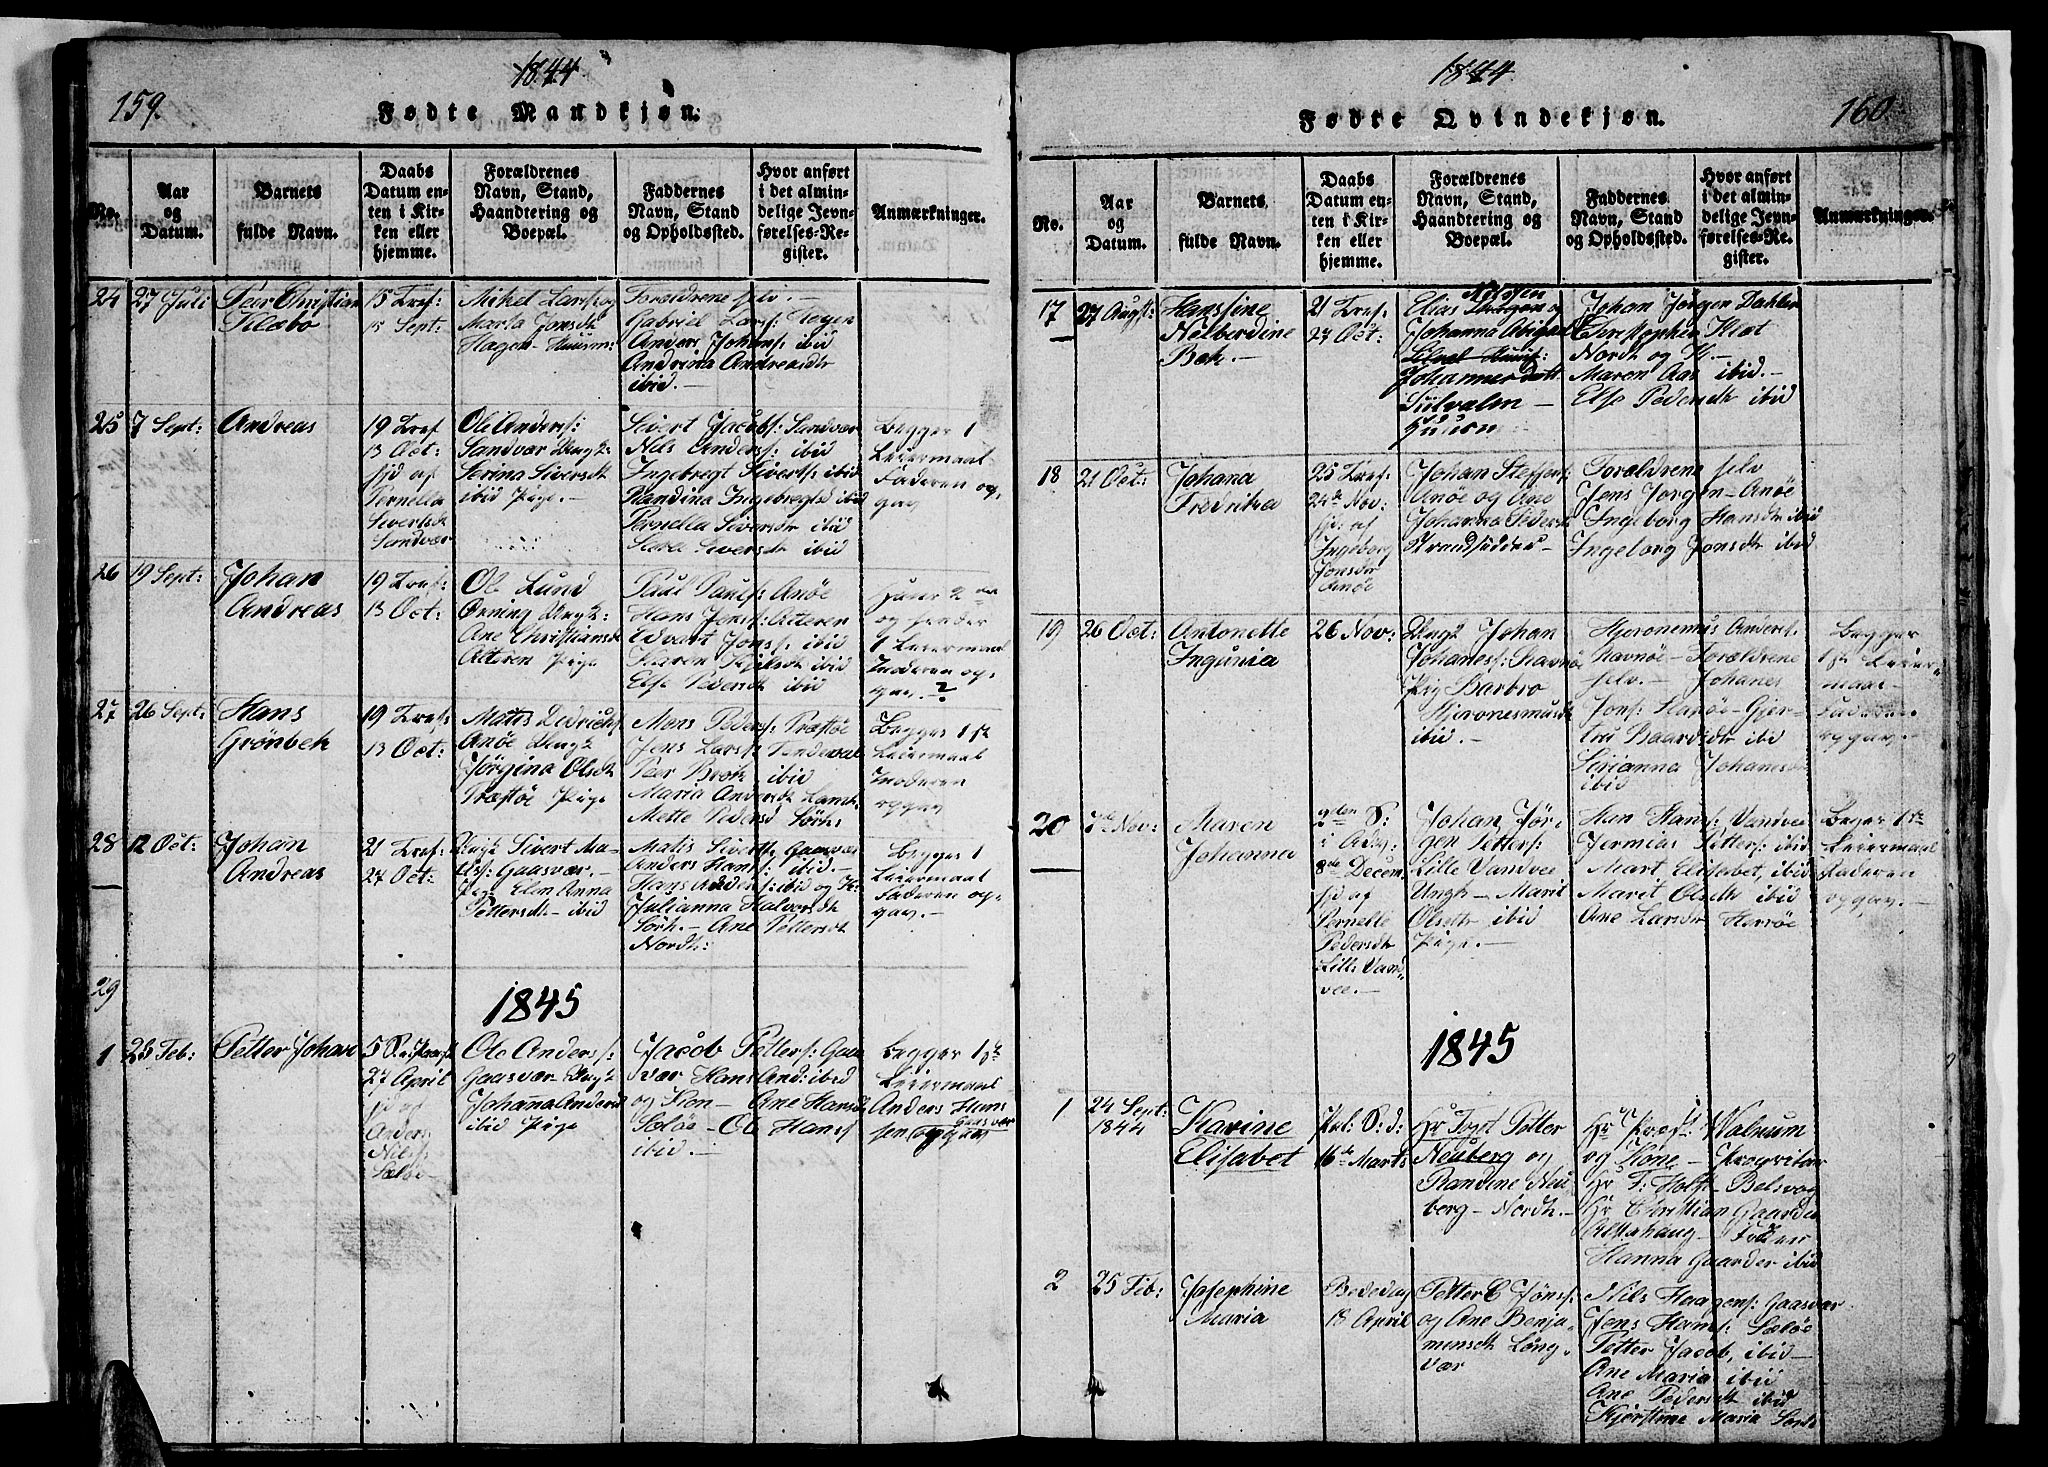 159.
1844
Fødte Mandkjøn.
No.
Aar
og
Datum.
Barnets
fulde Navn.
Daabs
Datum en-
ten i Kir-
ken eller
hjemme.
Forældrenes
Navn, Stand,
Haandtering og
Boepæl.
Faddernes
Navn, Stand
og Opholdssted.
Hvor anført
i det almin-
delige Jevn-
førelses-Re-
gister.
Anmærkninger.
24
27 Juli
Peer Christian
Klæbo
15 Tref:
15 Sept:
Mikel Lars: og
Marta Jonsdt
Hagen
Forældrene selv.-
Gabriel Lars: Hagen
Anders Johans: ibid
Andrina Andreasdt
ibid.-
25
7 Sept:
Andreas
19 Tref
13 Oct:
hjd af
Pernella
Sivertsdt
Sandvær
Ole Anders:
Sandvær Ung K
Serina Siversdt
ibid Pige.-
Sivert Jacobs: Sandvær
Nils Anders: ibid
Ingebregt Siverts: ibid
Randina Ingebregtsd ibid
Pernella Siversdt ibid
Sara Siversdt ibid
Begger 1
Leiermaal
Faderen og,
gav
26
19 Sept:
Johan
Andreas
19 Tref:
13 Oct:
Ol Lund
Ørning Ung K:
Ane Christiansdt
Alteren Pige
Paul Pauls: Anöe
Hans Jens: Alteren
Edvart Jons: ibid
Karen Kjilsdt ibid
Else Pedersdt ibid
1 Leiermaal
Moderen og,
gav.-?
27
26 Sept:
Hans
Grönbek
19 Tref:
13 Oct:
Mattis Didrichs:
Anöe Ung K
Jörgina Olsdt
Træftöe Pige
Mons Peders: Træftöe
Jens Lars: Tendeval
Peer Brok ibid
Maria Andersdt
Mette Pedersd Sörh:
Begges 1ste
Leiermaal
Moderen
opgav
28
12 Oct:
Johan
Andreas
21 Tref:
27 Oct:
Ung K Sivert Ma-
tis: Gaasvær.-
Pig: Elen Anna
Pettersdt - ibid
Matis Siverts: Gaasvær
Anders Hans: ibid.-
Hans Anders: ibid og K:
Julianna Halvorsdt
Sörh.- Ane Pettersdt
Nordh:
Begges 1
Leiermaal
Faderen op,
gav.-
29
1845
1
23 Feb:
Petter Johan
5 S. e. Paask
27 April
hjd af
Anders
Nils:
Sælöe
Ole Anders:
Gaasvær Ung K
Johanna Andersd
ibid Pige
Jacob Petters: Gaas
vær Hans And: ibid
og Kon - Ane Hansd
Sælöe - Ol Hans:
ibid.-
Begger 1ste
Leiermaal
Anders Hans
sen Gaasvær
opgav
1844
Fødte Qvindekjøn.
160.
No.
Aar
og
Datum.
Barnets
fulde Navn.
Daabs
Datum en-
ten i Kir-
ken eller
hjemme.
Forældrenes
Navn, Stand,
Haandtering og
Boepæl.
Faddernes
Navn, Stand
og Opholdssted.
Hvor anført
i det almin-
delige Jevn-
førelses-Re-
gister.
Anmærkninger.
17
27 Augst:
Hanssine
Helberdine
Bak.-
21 Tref:
27 Oct:
Nilssen
Elias og
Johanna Abigael
Johannes datt
Sülvalen -
Huusm
Johan Jörgen Dahler
Christopher Klæt
Nordh og K.-
Maren Aas ibid.-
Else Pedersdt ibid
18
21 Oct:
Johana
Fredrikka
25 Tref:
24de Nov:
hjd af
Ingeborg
Jonsdt
Anöe
Johan Steffens:
Anöe og Ane
Johanna Pedersdt
Strandsidder-
Forældrene selv
Jens Jörgen - Anöe
Ingeborg Hansdt ibid
Ingeborg Jonsdt ibid
19
26 Oct:
Antonette
Ingünia
26 Nov:
Ung K Johan
Johanes: Havnöe
Pig Barbro
Hjeronesmusdt
ibid.-
Hjeronemus Anders:
Havnöe - Forældrene
selv.- Johanes
Jons: Havnöe - Gjer-
tru Baardsdt ibid
Sirianna Johanesdt
ibid
Begger
1ste Leier
maal
Faderen
opgav.-
20
7de Nov:
Maren
Johanna
2den S.
i Adv:
8de Decem
hjd af
Pernelle
Pedersdt
Lille Vand,
vee.-
Johan Jör-
gen Petters:
Lille Vandvee
Ungk - Marit
Olsdt ibid
Pige.-
Han Hans: Vandvee
Jermias Petters: ibid
Mart Elisabet, ibid
Marit Olsdt ibid
Ane Larsdt Herröe
Beger 1ste
Leiermaal
Faderen
opgav.-
1845
1
24 Sept:
1844
Karine
Elisabet
Pal: S: d:
16de Marts
Hr Fogt Petter
Neuberg og
Randine Neu
berg - Nordh.-
Hr Præst: Walnum
og Kone - Propritær
Hr F: Holst - Belsvag
Hr Christian Gaarder
Alstahaug -
Hanna Gaarder ibid
2
25 Feb:
Josephine
Maria
Bededag
18 April
Petter C Jöns:
og Ane Benja-
mensdt Lång-
vær
Nils Haagens: Gaasvær
Jens Hans: Sælöe
Petter Jacob, ibid -
Ane Maria ibid
Ane Pedersdt ibid
Kjerstine Maria